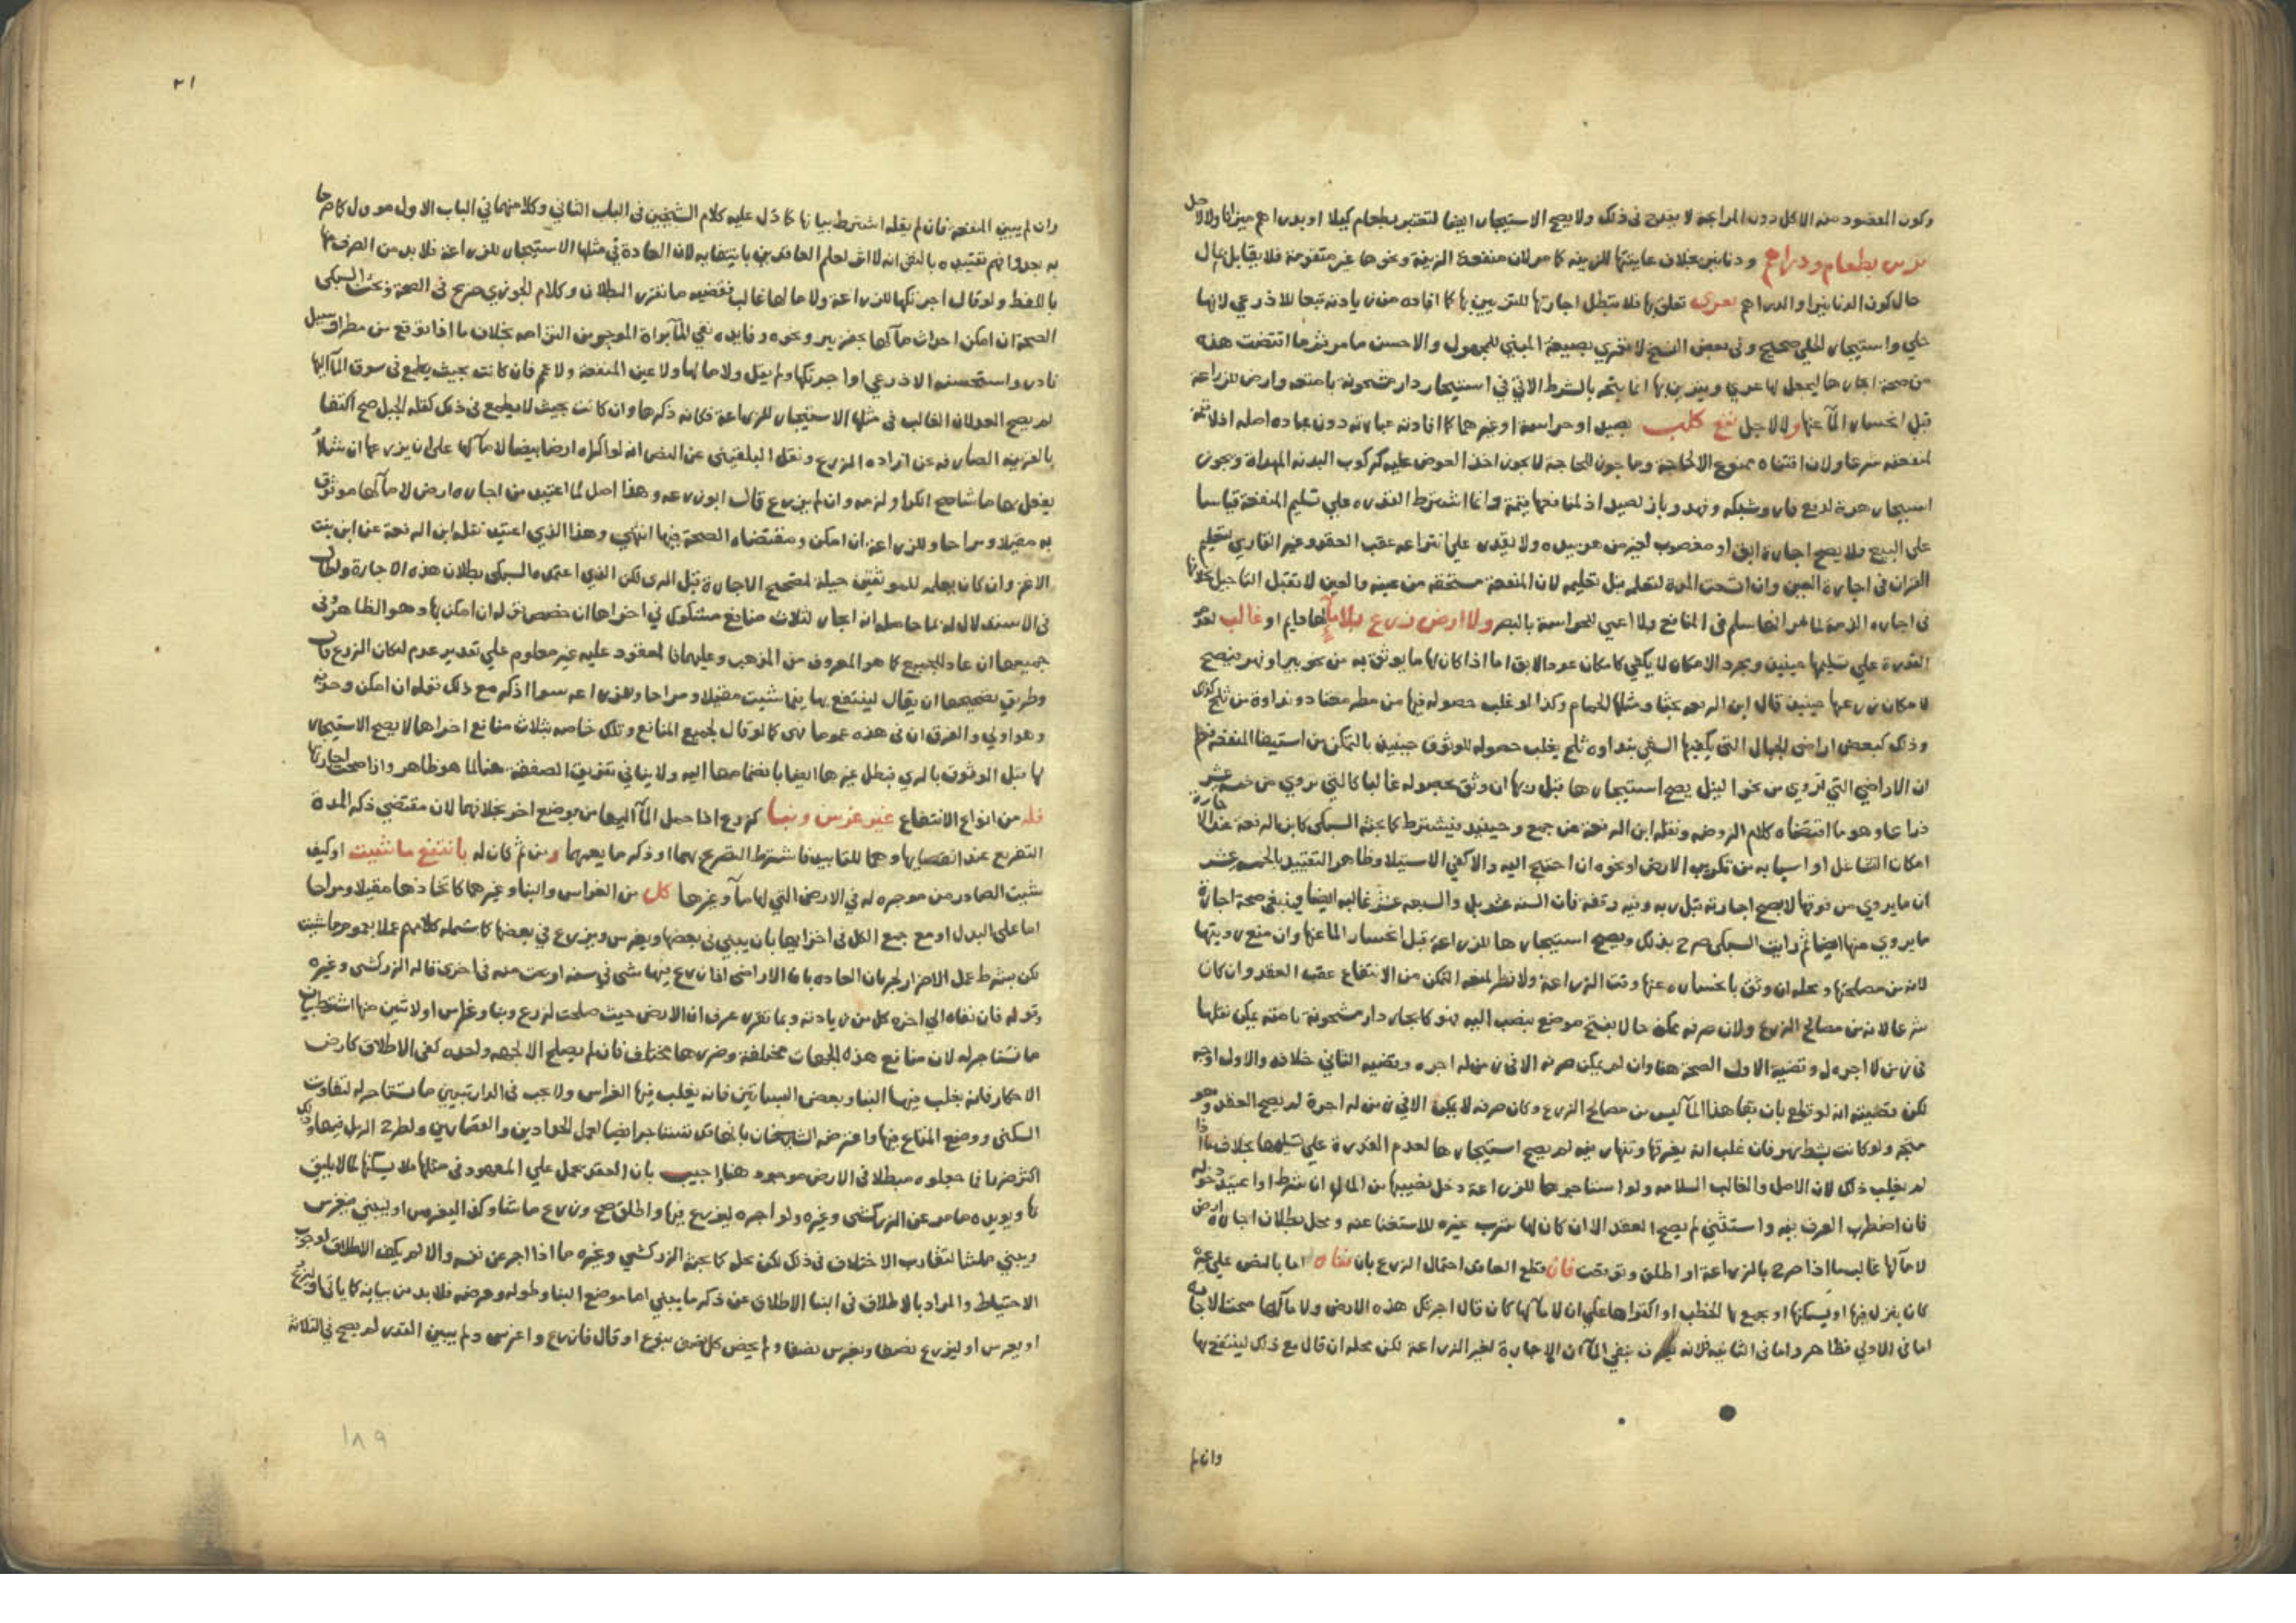 وكون المقصود منه الاكل دون الرايحة لا يقدح في ذلك ولا يصح الاستيجار ايضا لتعتبر بطعام كيلا او بدراهم ميزانا ولا لاجل
تزين بطعام ودراهم ودنانير بخلاف عاريتها للزينة كما مر لان منفعة الزينة ونحوها غير متقومة فلا يقابل بمال
حال كون الدنانير او الدراهم بعرى تعلق بها فلا تبطل اجارتها للتزيين بها كما افاده من زيادته تبعا للاذرعي لانها
حلي واستيجار الحلي صحيح وفي بعض النسخ لا بعري بصيغة المبني للمجهول والاحسن ما مر ثم ما اقتضت هذه
من صحة اجارها ليجعل لها عري ويتزين بها انما يتم بالشرط الاتي في استيجار دار مشحونة بامتعة وارض للزراعة
قبل انحسار المآ عنها ولا لاجل نفع كلب بصيد او حراسة او غيرهما كما افادته عبارته دون عبارة اصله اذ لا قيمة
لمنفعته شرعا ولان اقتناه ممنوع الا لحاجة وما جوز للحاجة لا يجوز اخذ العوض عليه كركوب البدنة المهداة ويجوز
استيجار هرة لدفع فار وشبكة وفهد وباز لصيد اذ لمنافعها قيمة وانما اشترط القدرة علي تسليم المنفعة قياسا
علي البيع فلا يصح اجارة ابق او مغصوب لغير من هو بيده ولا يقدر علي انتزاعه عقب العقد وغير القاري لتعليم
القران في اجارة العين وان اتسعت المدة لتعلمه قبل تعليمه لان المنفعة مستحقة من عينه والعين لا تقبل التاجيل بخلافها
في اجارة الذمة لما مر انها سلم في المنافع ولا اعمي للحراسة بالبصر ولا ارض زرع بلا ما لها دايم او غالب لعدم
القدرة علي تسليمها حينئذ ومجرد الامكان لا يكفي كامكان عود الابق اما اذا كان لها ما يوثق به من نحو بير او نهر فيصح
لامكان زرعها حينئذ قال ابن الرفعة بحثا ومثلها الحمام وكذا لو غلب حصوله فيها من مطر معتاد ونداوة من ثلج كذلك
وذلك كبعض اراضي الجبال التي يكفيها السقي بنداوة ثلج يغلب حصوله للوثوق حينئذ بالتمكن من استيفا المنفعة نعم
ان الاراضي التي تروي من نحو النيل يصح استيجارها قبل ريها ان وثق بحصوله غالبا كالتي تروي من خمسة عشر
ذراعا وهو ما اقتضاه كلام الروضة ونقله ابن الرفعة عن جمع وحينئذ يشترط كما بحثه السبكي كابن الرفعة عند الاجارة
امكان التشاغل او اسبابه من تكريب الارض او نحوه ان احتيج اليه والا كفي الاستيلا وظاهر التقييد بالخمسة عشر
ان ما يروي من فوقها لا يصح اجارته قبل ريه وفيه وقفة فان الستة عشر بل والسبعة عشر غالبة ايضا فينبغي صحة اجارة
ما يروي منها ايضا ثم رايت السبكي صرح بذلك ويصح استيجارها للزراعة قبل انحسار الما عنها وان منع رويتها
لانه من مصلحتها ومحله ان وثق بانحساره عنها وقت الزراعة ولا نظر لمنعه التمكن من الانتفاع عقب العقد وان كان
شرعا لانه من مصالح الزرع ولان صرفه ممكن حالا بفتح موضع ينصب اليه فهو كايجار دار مشحونة بامتعة يمكن نقلها
في زمن لا اجرة له وقضية الاول الصحة هنا وان لم يمكن صرفه الا في زمن له اجرة وقضية الثاني خلافه والاول اوجه
لكن قضيته انه لو قطع بان بقا هذا المآ ليس من مصالح الزرع وكان صرفه لا يمكن الا في زمن له اجرة لم يصح العقد وهو
متجه ولو كانت بشط نهر فان غلب انه يغرقها وتنهار فيه لم يصح استيجارها لعدم القدرة علي تسليمها بخلاف ما اذا
لم يغلب ذلك لان الاصل والغالب السلامة ولو استاجرها للزراعة دخل نصيبها من الما ان شرط او اعتيد دخوله
فان اضطرب العرف فيه واستثني لم يصح العقد الا ان كان لها شرب غيره للاستغنا عنه ومحل بطلان اجارة ارض
لا مآ لها غالب ما اذا صرح بالزراعة او اطلق وتوقعت فان قطع العاقد احتمال الزرع بان نفاه اما بالنص علي غيره
كان بغزل فيها او يسكنها او يجمع بها الحطب او اكتراها علي ان لا مآ لها كان قال اجرتك هذه الارض ولا مآ لها صحت الاجارة
اما في الاولي فظاهر واما في الثانية فلانه يعرف بنفي المآ ان الاجارة لغير الزراعة لكن محله ان قال مع ذلك لينتفع بها
وان لم
٢١
وان لم يبين المنفعة فان لم يقله اشترط بيانها كما دل عليه كلام الشيخين في الباب الثاني وكلامهما في الباب الاول مؤول كما صرحا
به بعد وافهم تقييده بالنفي انه لا اثر لعلم العاقدين بانتفايه لان العادة في مثلها الاستيجار للزراعة فلا بد من الصرف عنها
باللفظ ولو قال اجرتكها للزراعة ولا ما لها غالب فقضية ما تقرر البطلان وكلام الجوزي صريح في الصحة وبحث السبكي
الصحة ان امكن احداث مآ لها بحفر بير ونحوه وفايدة نفي المآ براة الموجر من التزامه بخلاف ما اذا توقع من مطر او سيل
نادر واستحسنه الاذرعي او اجرتكها ولم يقل ولا ما لها ولا عين المنفعة ولا عم فان كانت بحيث يطمع في سوق المآ اليها
لم يصح العقد لان الغالب في مثلها الاستيجار للزراعة فكانه ذكرها وان كانت بحيث لا يطمع في ذلك كقلة الجبل صح اكتفا
بالقرينة الصارفة عن ارادة الزرع ونقل البلقيني عن النص انه لو اكراه ارضا بيضا لا مآ لها علي ان يزرعها ان شا او
يفعل بها ما شا صح الكرا ولزمه وان لم يزرع قال ابو زرعة وهذا اصل لما اعتيد من اجارة ارض لا مآ لها موثوق
به مقيلا ومراحا وللزراعة ان امكن ومقتضاه الصحة فيها انتهي وهذا الذي اعتيد نقله ابن الرفعة عن ابن بنت
الاعز وان كان يعلمه للموثقين حيلة لتصحيح الاجارة قبل الري لكن الذي اعتمده السبكي بطلان هذه الاجارة واطال
في الاستدلال له بما حاصله انه ايجار لثلاث منافع مشكوك في اخراها ان خصص قوله ان امكن بها وهو الظاهر وفي
جميعها ان عاد للجميع كما هو المعروف من المذهب وعليهما فالمعقود عليه غير معلوم علي تقدير عدم امكان الزرع قال
وطريق تصحيحها ان يقال لينتفع بها فيما شيت مقيلا ومراحا وللزراعة سوا اذكر مع ذلك قوله ان امكن وحذفه
وهو اولي والفرق ان في هذه عموما فهي كما لو قال لجميع المنافع وتلك خاصة بثلاث منافع اخراها لا يصح الاستيجار
لها قبل الوثوق بالري فبطل غيرها ايضا بانضمامها اليه ولا ينافي تفريق الصفقة هنا لما هو ظاهر واذا صحت اجارتها
فله من انواع الانتفاع غير غرس وبنا كزرع اذا حمل المآ اليها من موضع اخر بخلافهما لان مقتضي ذكر المدة
التفريغ عند انقضايها وهما للتابيد فاشترط التصريح بهما او ذكر ما يعمهما ومن ثم كان له بانتفع ما شيت او كيف
شيت الصادر من موجره له في الارض التي لها مآ وغيرها كل من الغراس والبنا وغيرهما كاتخاذها مقيلا ومراحا
اما علي البدل او مع جمع الكل في اخرايها بان يبني في بعضها ويغرس ويزرع في بعضها كما شمله كلامهم عملا بعموم ما شيت
لكن بشرط عدم الاضرار لجريان العادة بان الاراضي اذا زرع فيها شي في سنة اريحت منه في اخرى قاله الزركشي وغيره
وقوله فان نفاه الي اخره كل من زيادته وبما تقرر عرف ان الارض حيث صلحت لزرع وبنا وغراس او لاثنين منها اشترط بيان
ما تستاجر له لان منافع هذه الجهات مختلفة وضررها مختلف فان لم يصلح الا لجهة واحدة كفي الاطلاق كارض
الاحكار فانه يغلب فيها البنا وبعض البساتين فانه يغلب فيها الغراس ولا يجب في الدار تبيين ما تستاجر له لتفاوت
السكني ووضع المتاع فيها واعترضه الشيخان بانها قد تستاجر ايضا لعمل الحدادين والقصارين ولطرح الزبل فيها وذلك
اكثر ضررا فما جعلوه مبطلا في الارض موجود هنا واجيب بان العقد يحمل علي المعهود في مثلها فلا يسكنها ما لا يليق
بها ويويده ما مر عن الزركشي وغيره ولو اجره ليزرع فيها واطلق صح وزرع ما شا وكذا ليغرس او ليبني فيغرس
ويبني ما شا لتقارب الاختلاف في ذلك لكن محله كما بحثه الزركشي وغيره ما اذا اجر عن نفسه والا لم يكف الاطلاق لوجوب
الاحتياط والمراد بالاطلاق في البنا الاطلاق عن ذكر ما يبني اما موضع البنا وطوله وعرضه فلا بد من بيانه كما ياتي او ليزرع
او يغرس او ليزرع نصفا ويغرس نصفا ولم يخص كل نصف بنوع او قال فازرع واغرس ولم يبين القدر لم يصح في الثلاثة
١٨٩